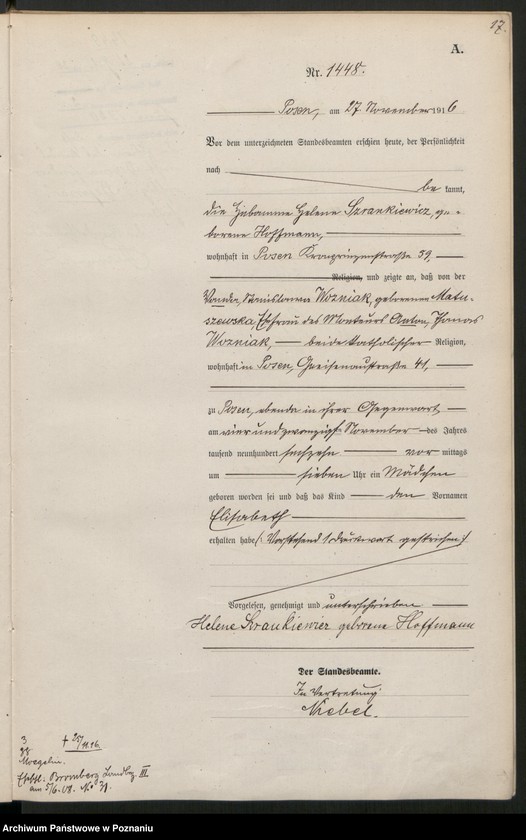 17.
A.
Nr. 1448.
Posen, am 27 November 1916
Vor dem unterzeichneten Standesbeamten erschien heute, der Persönlichkeit
nach be kannt,
die Hebamme Helene Szrankiewicz, ge-
borene Hoffmann,
wohnhaft in Posen Kronprinzenstraße 39,
Religion, und zeigte an, daß von der
Wanda, Stanislawa Wozniak, geborenen Matu-
szewska, Ehefrau des Monteurs Anton, Thomas
Wozniak, beide katholischer Religion,
wohnhaft in Posen, Gneisenaustraße 41,
zu Posen, ebenda in ihrer Gegenwart
am vier und zwanzigsten November des Jahres
tausend neunhundert sechzehn vor mittags
um sieben Uhr ein Mädchen
geboren worden sei und daß das Kind den Vornamen
Elisabeth
erhalten habe (Vorstehend 1 Druckwort gestrichen)
Vorgelesen, genehmigt und unterschrieben
Helene Szrankiewicz geborene Hoffmann
Der Standesbeamte.
In Vertretung
Niebel.
3
† 25/11.16.
Mogiln.
Eheschl. Bromberg Landbez. III
am 5/6.08. No 31.
Archiwum Państwowe w Poznaniu